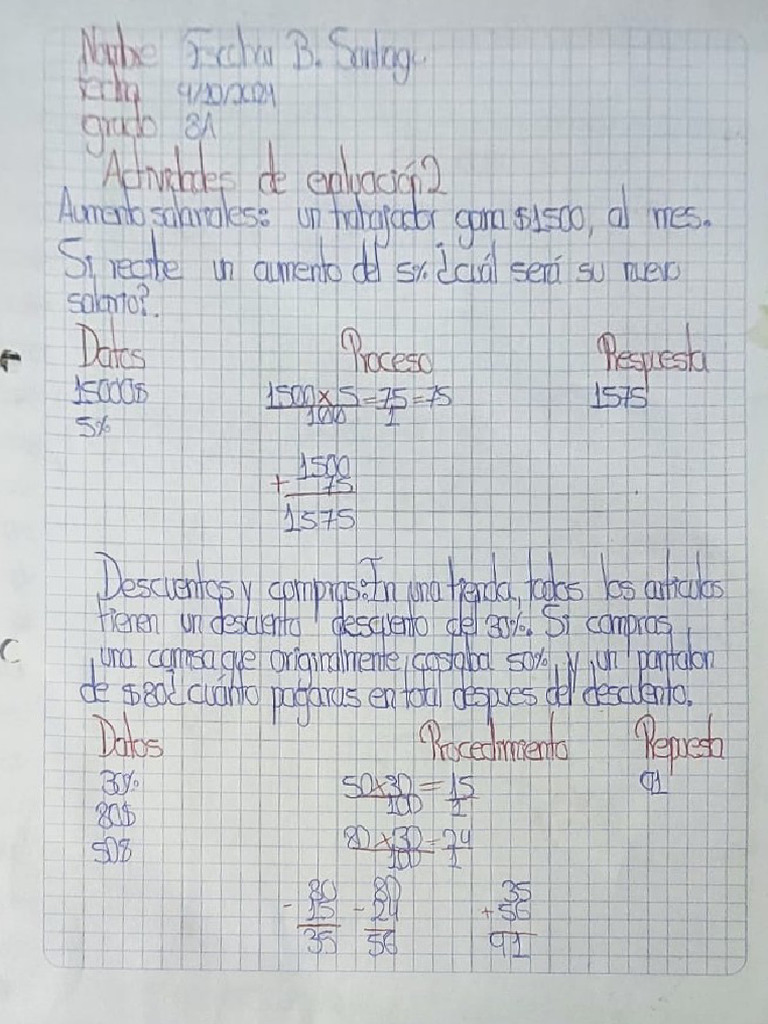 Nombre B. Santiago
fecha 9/10/2024
grado 8A
Actividades de evaluación 2
Aumento salariales: un trabajador gana $1500, al mes.
Si recibe un aumento del 5% ¿cuál será su nuevo
salario?.
Datos Proceso Respuesta
15000$ 1500 x 5 = 75 = 75 1575
100 1
5%
1500
+ 75
1575
Descuentos y compras: En una tienda, todos los articulos
tienen un descuento descuento del 30%. Si compras
una camisa que originalmente, costaba 50%, y, un pantalon
de $80¿ cuánto pagaras en total despues del descuento.
Datos Procedimiento Repuesta
30% 50x30 = 15 91
100 1
80$ 80 x 30 = 24
100 1
50$
- 80 - 80 35
15 24 + 56
35 56 91